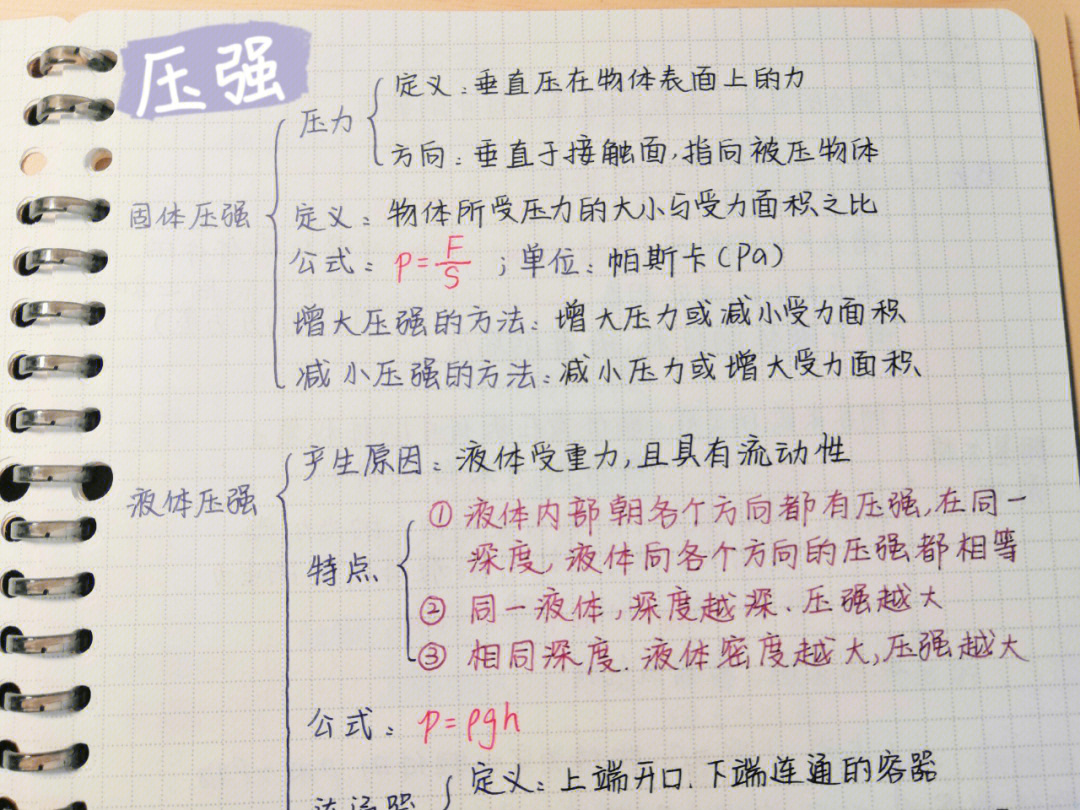 压强
压力
定义：垂直压在物体表面上的力
方向：垂直于接触面,指向被压物体
固体压强
定义：物体所受压力的大小与受力面积之比
公式：p=F/S ；单位：帕斯卡(Pa)
增大压强的方法：增大压力或减小受力面积
减小压强的方法：减小压力或增大受力面积
液体压强
产生原因：液体受重力,且具有流动性
特点
① 液体内部朝各个方向都有压强,在同一
深度,液体向各个方向的压强都相等
② 同一液体,深度越深.压强越大
③ 相同深度.液体密度越大,压强越大
公式：p=ρgh
定义：上端开口.下端连通的容器